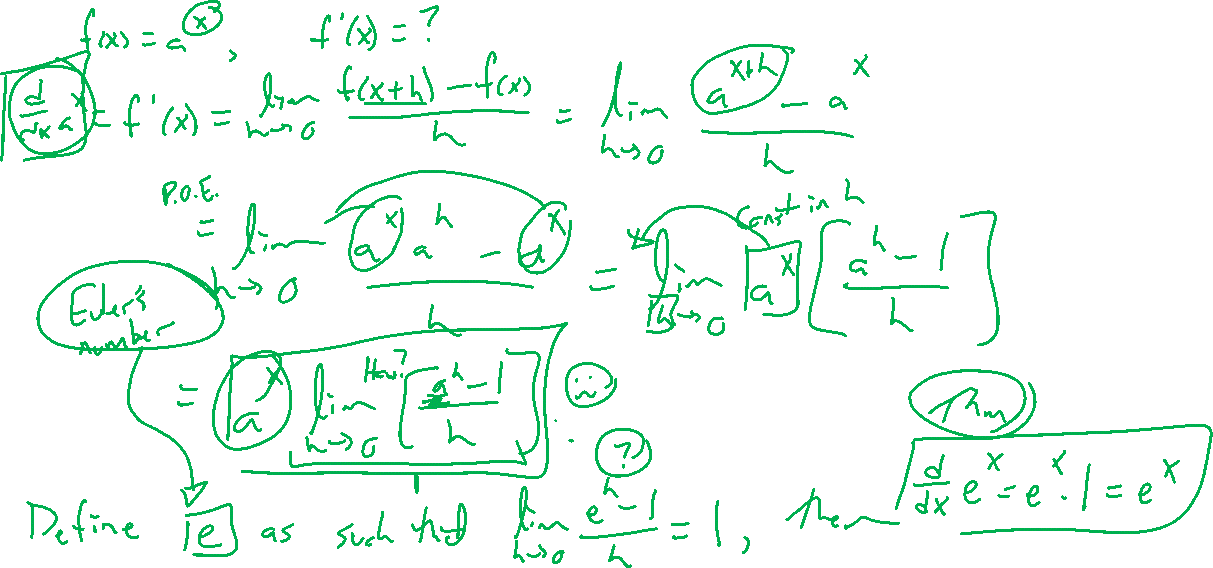 f(x) = a^x, f'(x) = ?
d/dx a^x = f'(x) = lim h→0 (f(x+h) - f(x))/h = lim h→0 (a^(x+h) - a^x)/h
P.O.E.
= lim h→0 (a^x a^h - a^x)/h = lim h→0 a^x [(a^h - 1)/h]
const in h
Euler's number
= a^x lim h→0 [(a^h - 1)/h]
How?
?
Thm
Define e as such that lim h→0 (e^h - 1)/h = 1, then d/dx e^x = e^x · 1 = e^x